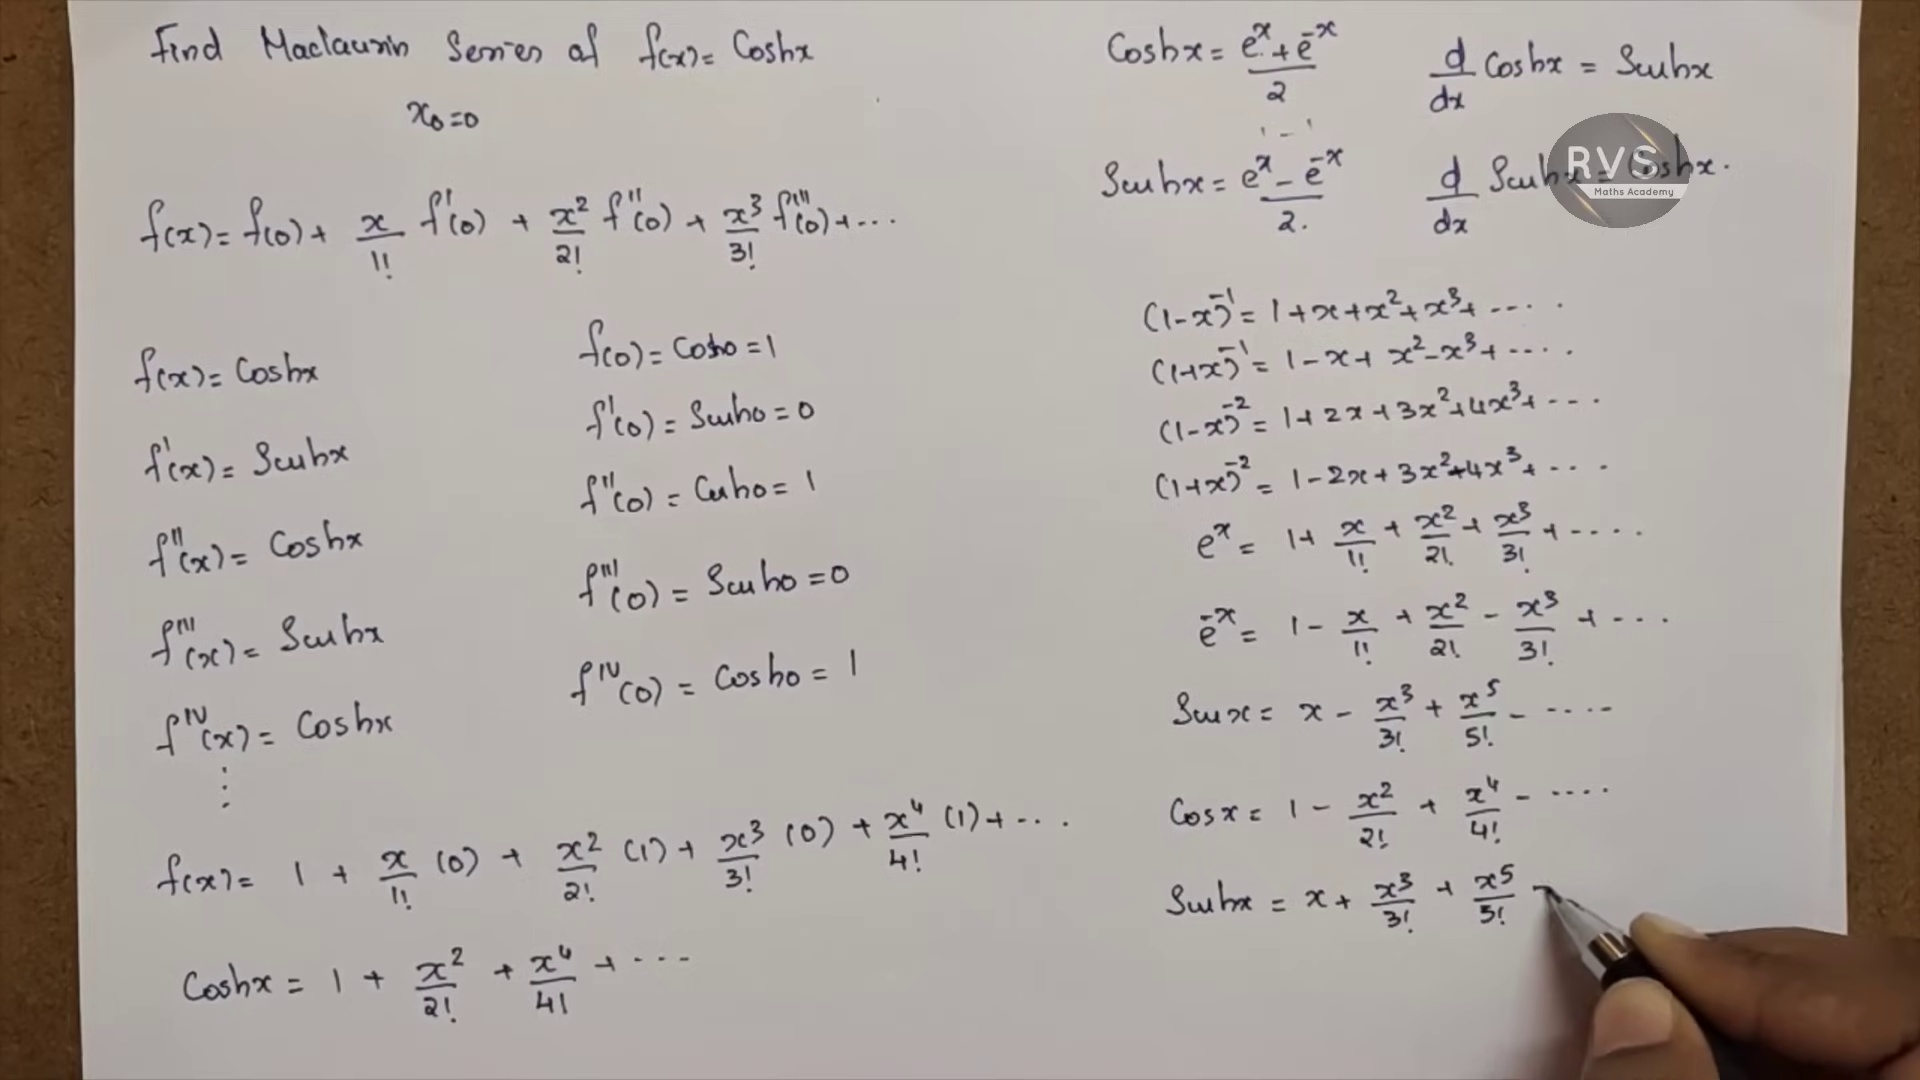 Find Maclaurin Series of f(x) = Coshx
x₀=0
f(x) = f(0) + x/1! f'(0) + x²/2! f''(0) + x³/3! f'''(0) + ...
f(x) = Coshx
f'(x) = Sinhx
f''(x) = Coshx
f'''(x) = Sinhx
f^IV(x) = Coshx
⋮
f(0) = Cosh0 = 1
f'(0) = Sinh0 = 0
f''(0) = Cosh0 = 1
f'''(0) = Sinh0 = 0
f^IV(0) = Cosh0 = 1
f(x) = 1 + x/1! (0) + x²/2! (1) + x³/3! (0) + x⁴/4! (1) + ...
Coshx = 1 + x²/2! + x⁴/4! + ...
Coshx = (e^x + e^-x)/2
d/dx Coshx = Sinhx
Sinhx = (e^x - e^-x)/2.
d/dx Sinhx = Coshx.
RVS
Maths Academy
(1-x)^-1 = 1+x+x²+x³+ ....
(1+x)^-1 = 1-x+x²-x³+ ....
(1-x)^-2 = 1+2x+3x²+4x³+ ...
(1+x)^-2 = 1-2x+3x²+4x³+ ...
e^x = 1+ x/1! + x²/2! + x³/3! + ....
e^-x = 1 - x/1! + x²/2! - x³/3! + ...
Sinx = x - x³/3! + x⁵/5! - ....
Cosx = 1 - x²/2! + x⁴/4! - ....
Sinhx = x + x³/3! + x⁵/5!